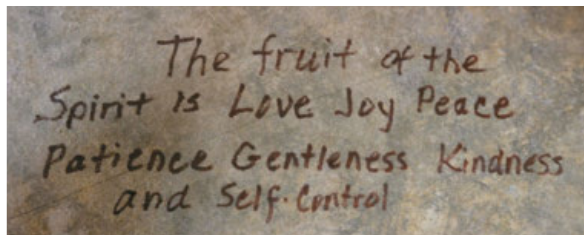 The fruit of the
Spirit is Love Joy Peace
Patience Gentleness Kindness
and Self-Control